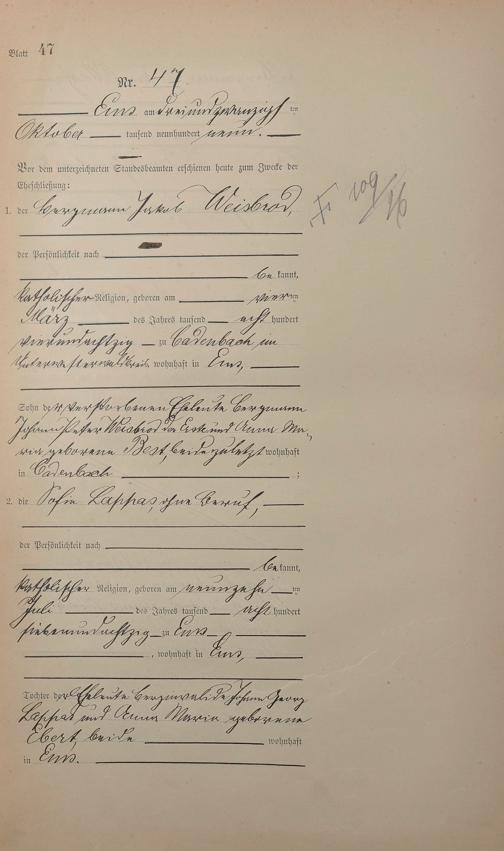 Blatt 47
Nr. 47
Ems am dreiundzwanzigsten
Oktober tausend neunhundert neun.
Vor dem unterzeichneten Standesbeamten erschienen heute zum Zwecke der
Eheschließung:
1. der Bergmann Jakob Weisbrod,
der Persönlichkeit nach
bekannt,
katholischer Religion, geboren am vierten
März des Jahres tausend acht hundert
vierundachtzig zu Cadenbach im
Unterwesterwaldkreis wohnhaft in Ems,
Sohn der verstorbenen Eheleute Bergmann
Johann Peter Weisbrod der Erste und Anna Ma-
ria geborene Best, beide zuletzt wohnhaft
in Cadenbach ;
2. die Sofie Lappas, ohne Beruf,
der Persönlichkeit nach
bekannt,
katholischer Religion, geboren am neunzehnten
Juli des Jahres tausend acht hundert
siebenundachtzig zu Ems
, wohnhaft in Ems,
Tochter der Eheleute Johann Georg
Lappas und Anna Maria geborene
Ebert, beide wohnhaft
in Ems.